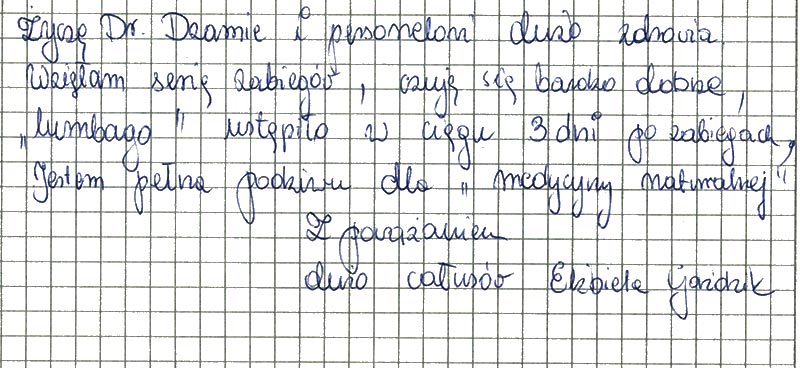 Życzę Dr. Dzamie i personelom dużo zdrowia.
Wzięłam serię zabiegów, czuję się bardzo dobrze,
„lumbago" ustąpiło w ciągu 3 dni po zabiegach,
Jestem pełna podziwu dla „medycyny naturalnej"
Z poważaniem
dużo całusów Elżbieta